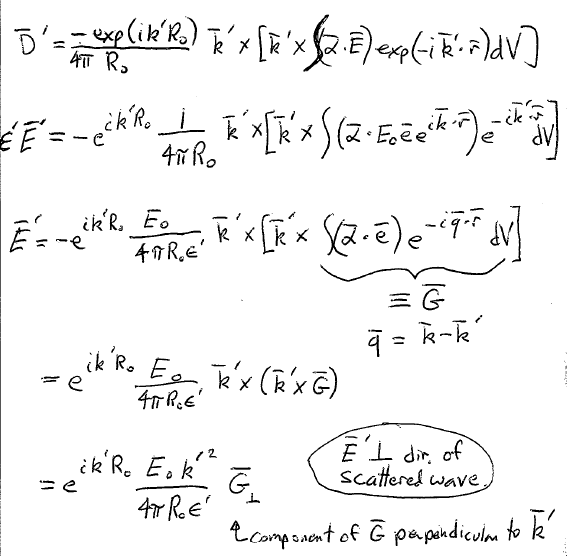 D̄' = -exp(ik'R₀)/4π R₀ k̄' × [k̄' × ∫(ᾱ·Ē)exp(-ik̄'·r̄)dV]
ε'Ē' = -e^{ik'R₀} 1/4πR₀ k̄' × [k̄' × ∫(ᾱ·E₀ē e^{ik̄·r̄})e^{-ik̄'·r̄} dV]
Ē' = -e^{ik'R₀} Ē₀/4πR₀ε' k̄' × [k̄' × ∫(ᾱ·ē)e^{-iq̄·r̄} dV]
≡ Ḡ
q̄ = k̄ - k̄'
= e^{ik'R₀} E₀/4πR₀ε' k̄' × (k̄' × Ḡ)
= e^{ik'R₀} E₀k'²/4πR₀ε' Ḡ⊥
Ē' ⊥ dir. of
scattered wave.
↑ component of Ḡ perpendicular to k̄'